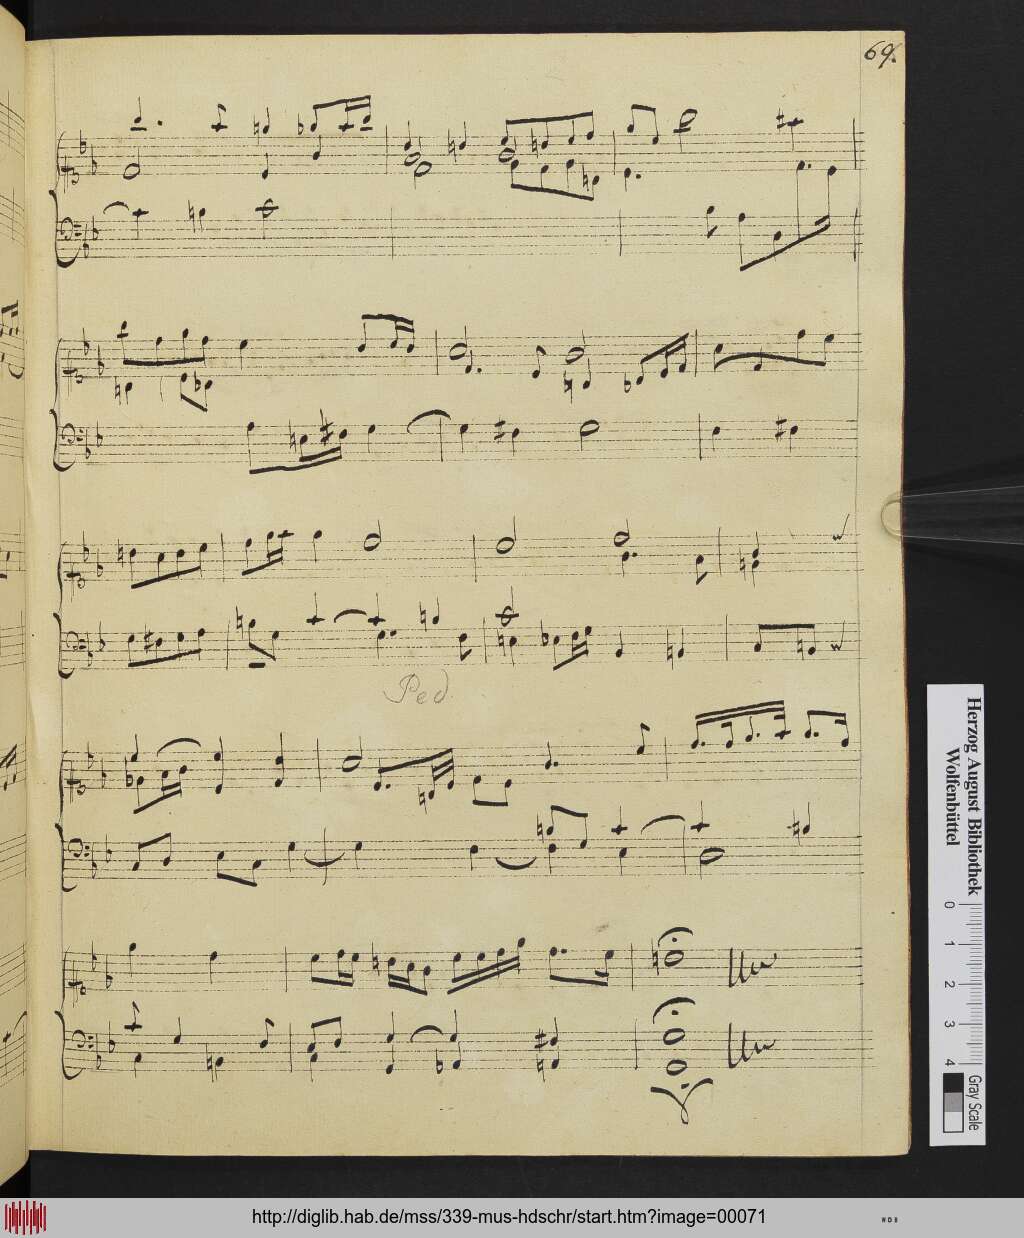 69.
Ped.
Herzog August Bibliothek
Wolfenbüttel
0 1 2 3 4
Gray Scale
http://diglib.hab.de/mss/339-mus-hdschr/start.htm?image=00071